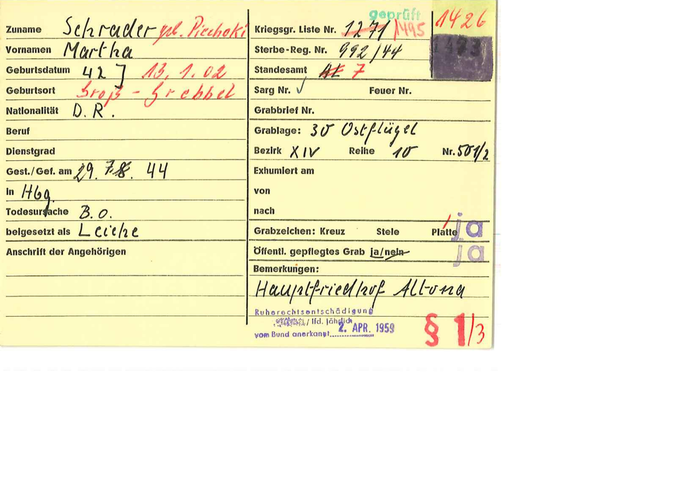 geprüft
Zuname Schrader geb. Piechoki
Vornamen Martha
Geburtsdatum 42] 13.1.02
Geburtsort Groß-Grebbel
Nationalität D.R.
Beruf
Dienstgrad
Gest./Gef. am 29. 7. 44
In Hbg.
Todesursache B.o.
beigesetzt als Leiche
Anschrift der Angehörigen
Kriegsgr. Liste Nr. 1271/1495
1426
Sterbe-Reg. Nr. 992/44
Standesamt 7
Sarg Nr. ✓ Feuer Nr.
Grabbrief Nr.
Grablage: 30 Ostflügel
Bezirk XIV Reihe 10 Nr. 501/2
Exhumiert am
von
nach
Grabzeichen: Kreuz Stele Platte ja
Öffentl. gepflegtes Grab ja/nein ja
Bemerkungen:
Hauptfriedhof Altona
Ruherechtsentschädigung
/ lfd. jährlich
vom Bund anerkannt 2. APR. 1959
§ 1/3